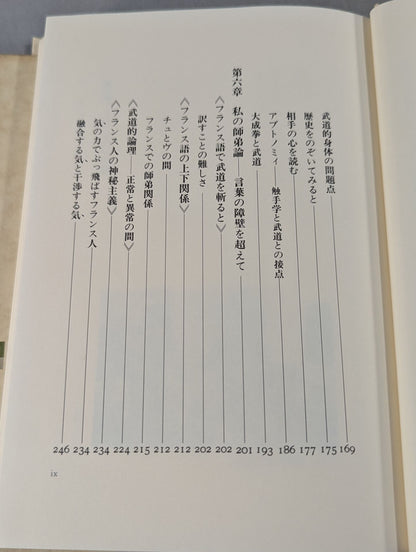 武道的身体の問題点 169
歴史をのぞいてみると 175
相手の心を読む 177
アプトノミィ——触手学と武道との接点 186
大成拳と武道 193
第六章 私の師弟論——言葉の障壁を超えて 201
《フランス語で武道を斬ると》 202
訳すことの難しさ 202
《フランス語の上下関係》 212
チュとヴの間 212
フランスでの師弟関係 215
《武道的論理——正常と異常の間》 224
《フランス人の神秘主義》 234
気の力でぶっ飛ばすフランス人 234
融合する気と干渉する気 246
ix